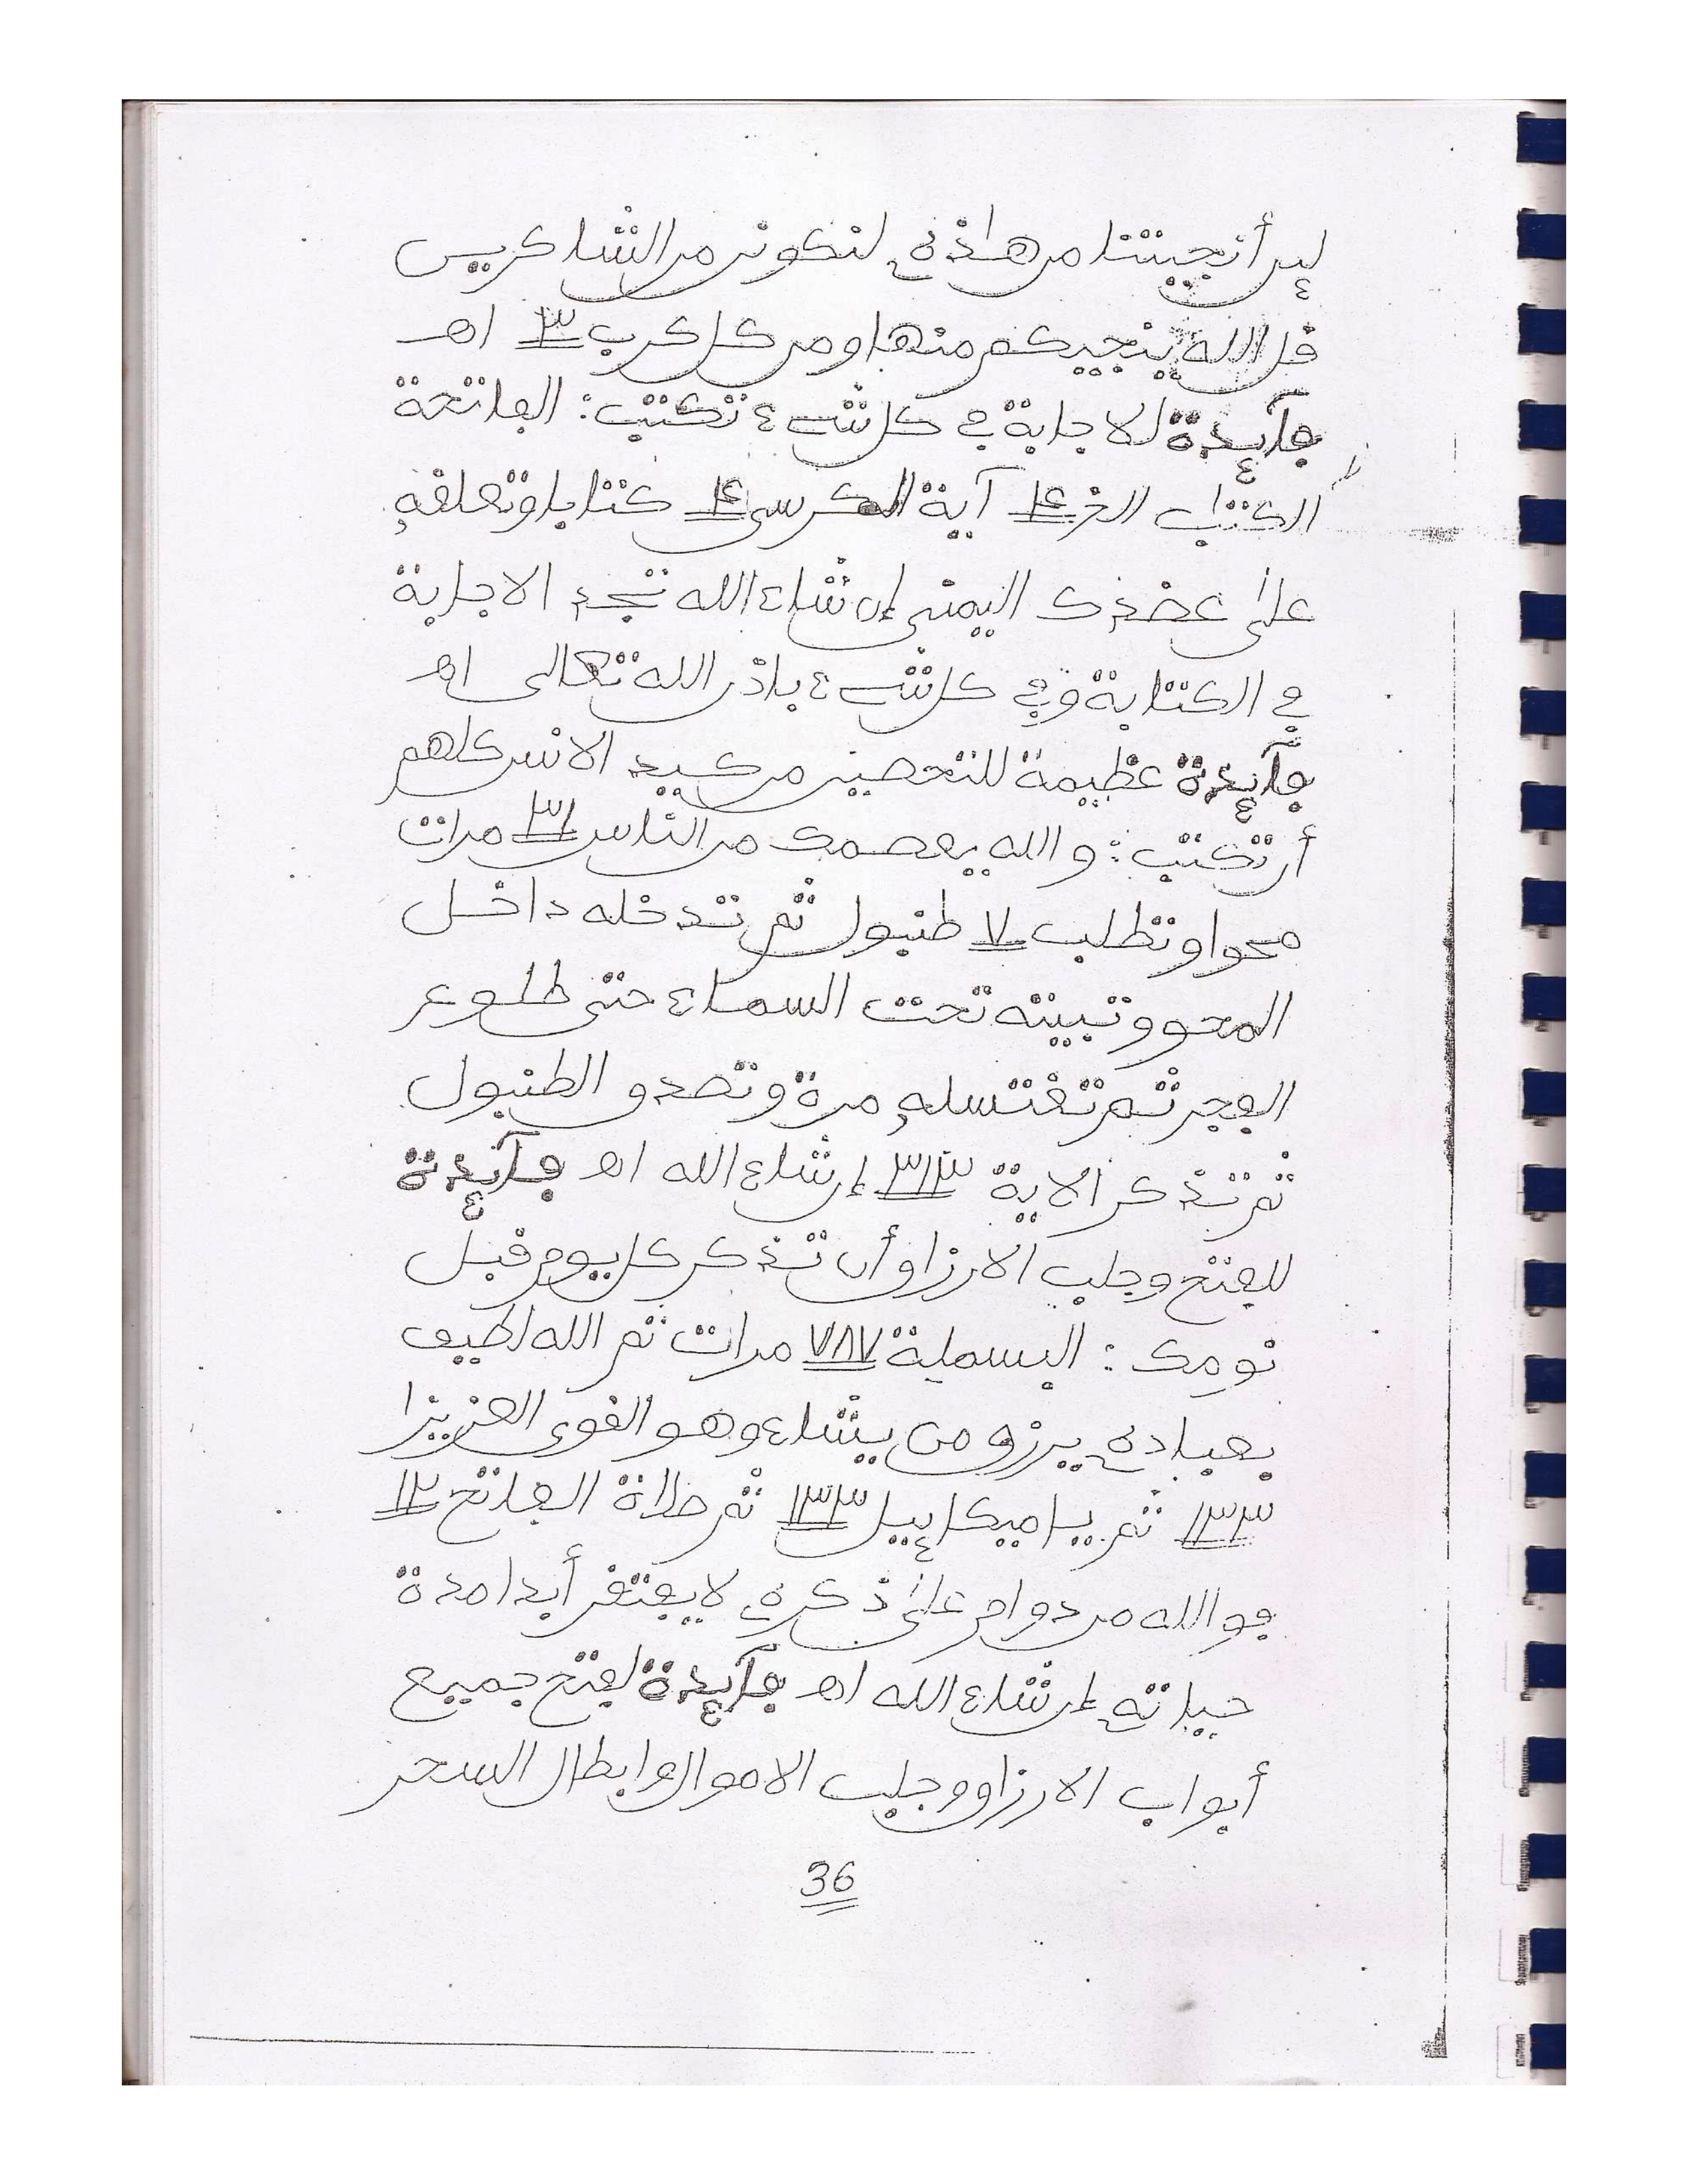 لين أنجيتنا من هاذه لنكونن من الشاكرين
قل الله ينجيكم منها ومن كل كرب ٣ اهـ
فآئدة لاجابة في كل شيء تكتب: الفاتحة
الكتاب الخ ١٤ آية الكرسي ١٤ كتابا وتعلقه
على عضدك اليمنى إن شاء الله تجد الاجابة
في الكتابة وفي كل شيء باذن الله تعالى اهـ
فآئدة عظيمة للتحصين من كيد الانس كلهم
أن تكتب: والله يعصمك من الناس ٣١ مرات
محوا وتطلب ٧ طنبول ثم تدخله داخل
المحو وتبيته تحت السماء حتى طلوع
الفجر ثم تغتسله مرة وتصدق الطنبول
ثم تذكر الاية ٣١٣ إن شاء الله اهـ فآئدة
للفتح وجلب الارزاق أن تذكر كل يوم قبل
نومك: البسملة ٧٨٧ مرات ثم الله لطيف
بعباده يرزق من يشاء وهو القوي العزيز
١٣٣ ثم يا ميكاييل ١٣٣ ثم صلاة الفاتح ١٢
فوالله من دوام على ذكره لا يفتقر أبدا مدة
حياته إن شاء الله اهـ فآئدة لفتح جميع
أبواب الارزاق وجلب الاموال وابطال السحر
36